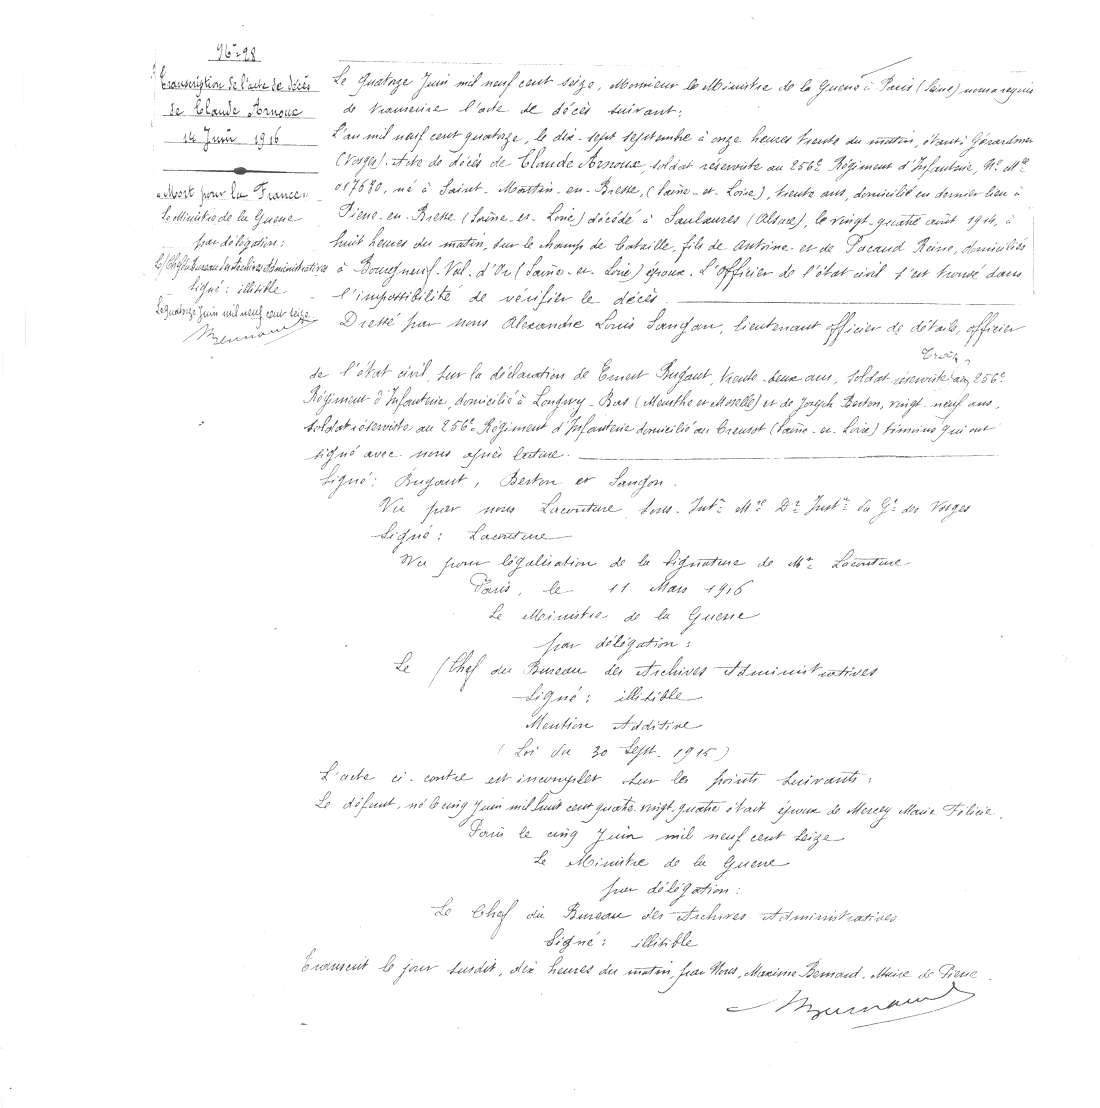 96-98
Transcription de l'acte de décès
de Claude Arnoux
14 Juin 1916
"Mort pour la France"
Le Ministre de la Guerre
par délégation:
L/Chef du Bureau des Archives Administratives
Signé: illisible
Le quatorze Juin mil neuf cent seize
Bernard
Le quatorze Juin mil neuf cent seize, Monsieur le Ministre de la Guerre à Paris (Seine) nous a requis
de transcrire l'acte de décès suivant:
L'an mil neuf cent quatorze, le dix-sept septembre à onze heures trente du matin, étant à Gérardmer
(Vosges). Acte de décès de Claude Arnoux, soldat réserviste au 256e Régiment d'Infanterie, No Mle
017680, né à Saint-Martin-en-Bresse, (Saône-et-Loire), trente ans, domicilié en dernier lieu à
Pierre-en-Bresse (Saône-et-Loire) décédé à Saulxures (Alsace), le vingt-quatre août 1914, à
huit heures du matin, sur le champ de bataille, fils de Antoine et de Pacaud Reine, domiciliés
à Bourgneuf-Val-d'Or (Saône-et-Loire) époux. L'officier de l'état civil s'est trouvé dans
l'impossibilité de vérifier le décès.
Dressé par nous Alexandre Louis Sandon, lieutenant officier de détails, officier
de l'état civil, sur la déclaration de Ernest Bugaut, trente-deux ans, soldat réserviste au 256e
Régiment d'Infanterie, domicilié à Longwy-Bas (Meurthe et Moselle) et de Joseph Berton, vingt-neuf ans,
soldat réserviste au 256e Régiment d'Infanterie domicilié au Creusot (Saône-et-Loire) témoins qui ont
signé avec nous après lecture.
Signé: Bugaut, Berton et Sandon.
Vu par nous Lacouture Sous-Intt Mre Dr Justce du Gt des Vosges
Signé: Lacouture
Vu pour légalisation de la signature de Mr Lacouture
Paris, le 11 Mars 1916
Le Ministre de la Guerre
par délégation:
Le /Chef du Bureau des Archives Administratives
Signé: illisible
Mention Additive
(Loi du 30 Sept. 1915)
L'acte ci-contre est incomplet sur les points suivants:
Le défunt, né le cinq Juin mil huit cent quatre-vingt-quatre était époux de Mercey Marie Félicie.
Paris le cinq Juin mil neuf cent seize
Le Ministre de la Guerre
par délégation:
Le Chef du Bureau des Archives Administratives
Signé: illisible
Transcrit le jour susdit, dix heures du matin, par Nous, Maxime Bernard, Maire de Pierre.
Bernard